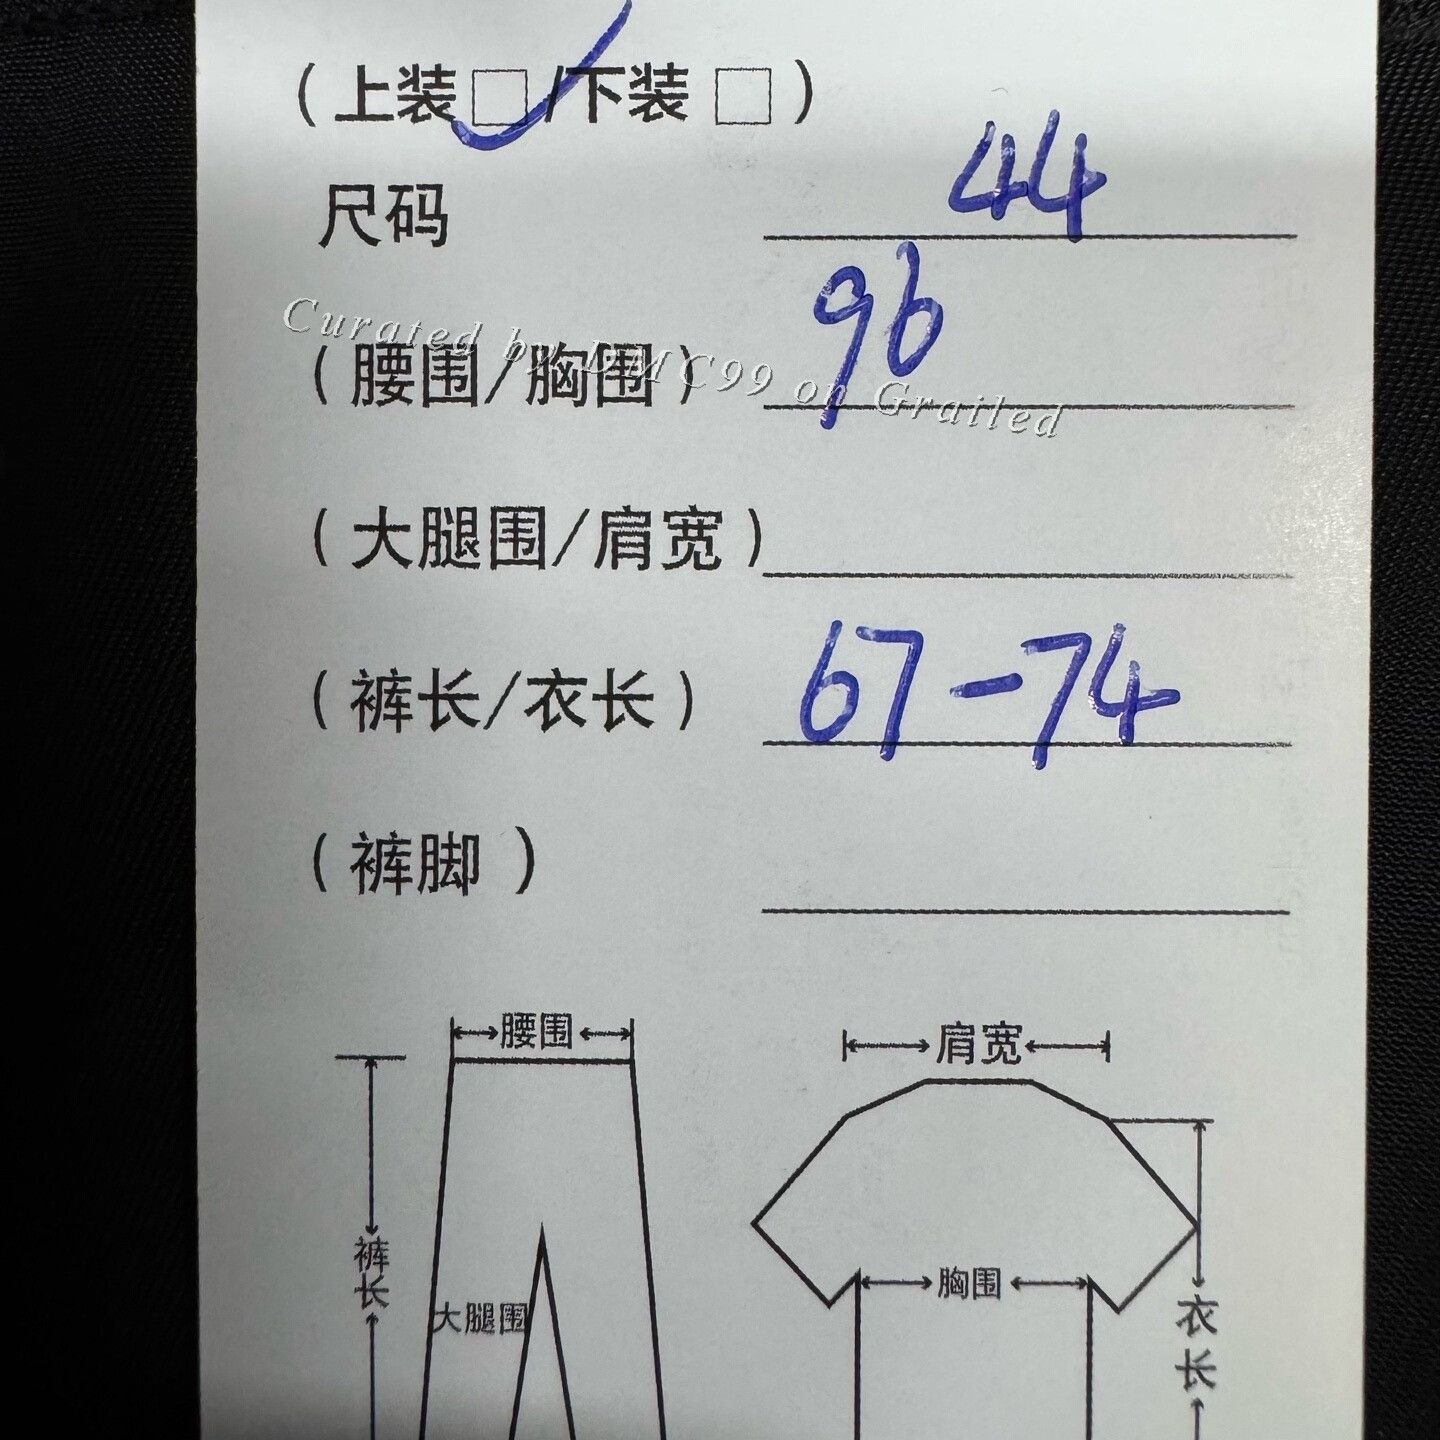 (上装□/下装□)
尺码 44
(腰围/胸围) 96
Curated by DMC99 on Grailed
(大腿围/肩宽)
(裤长/衣长) 67-74
(裤脚)
腰围
肩宽
裤长
大腿围
胸围
衣长